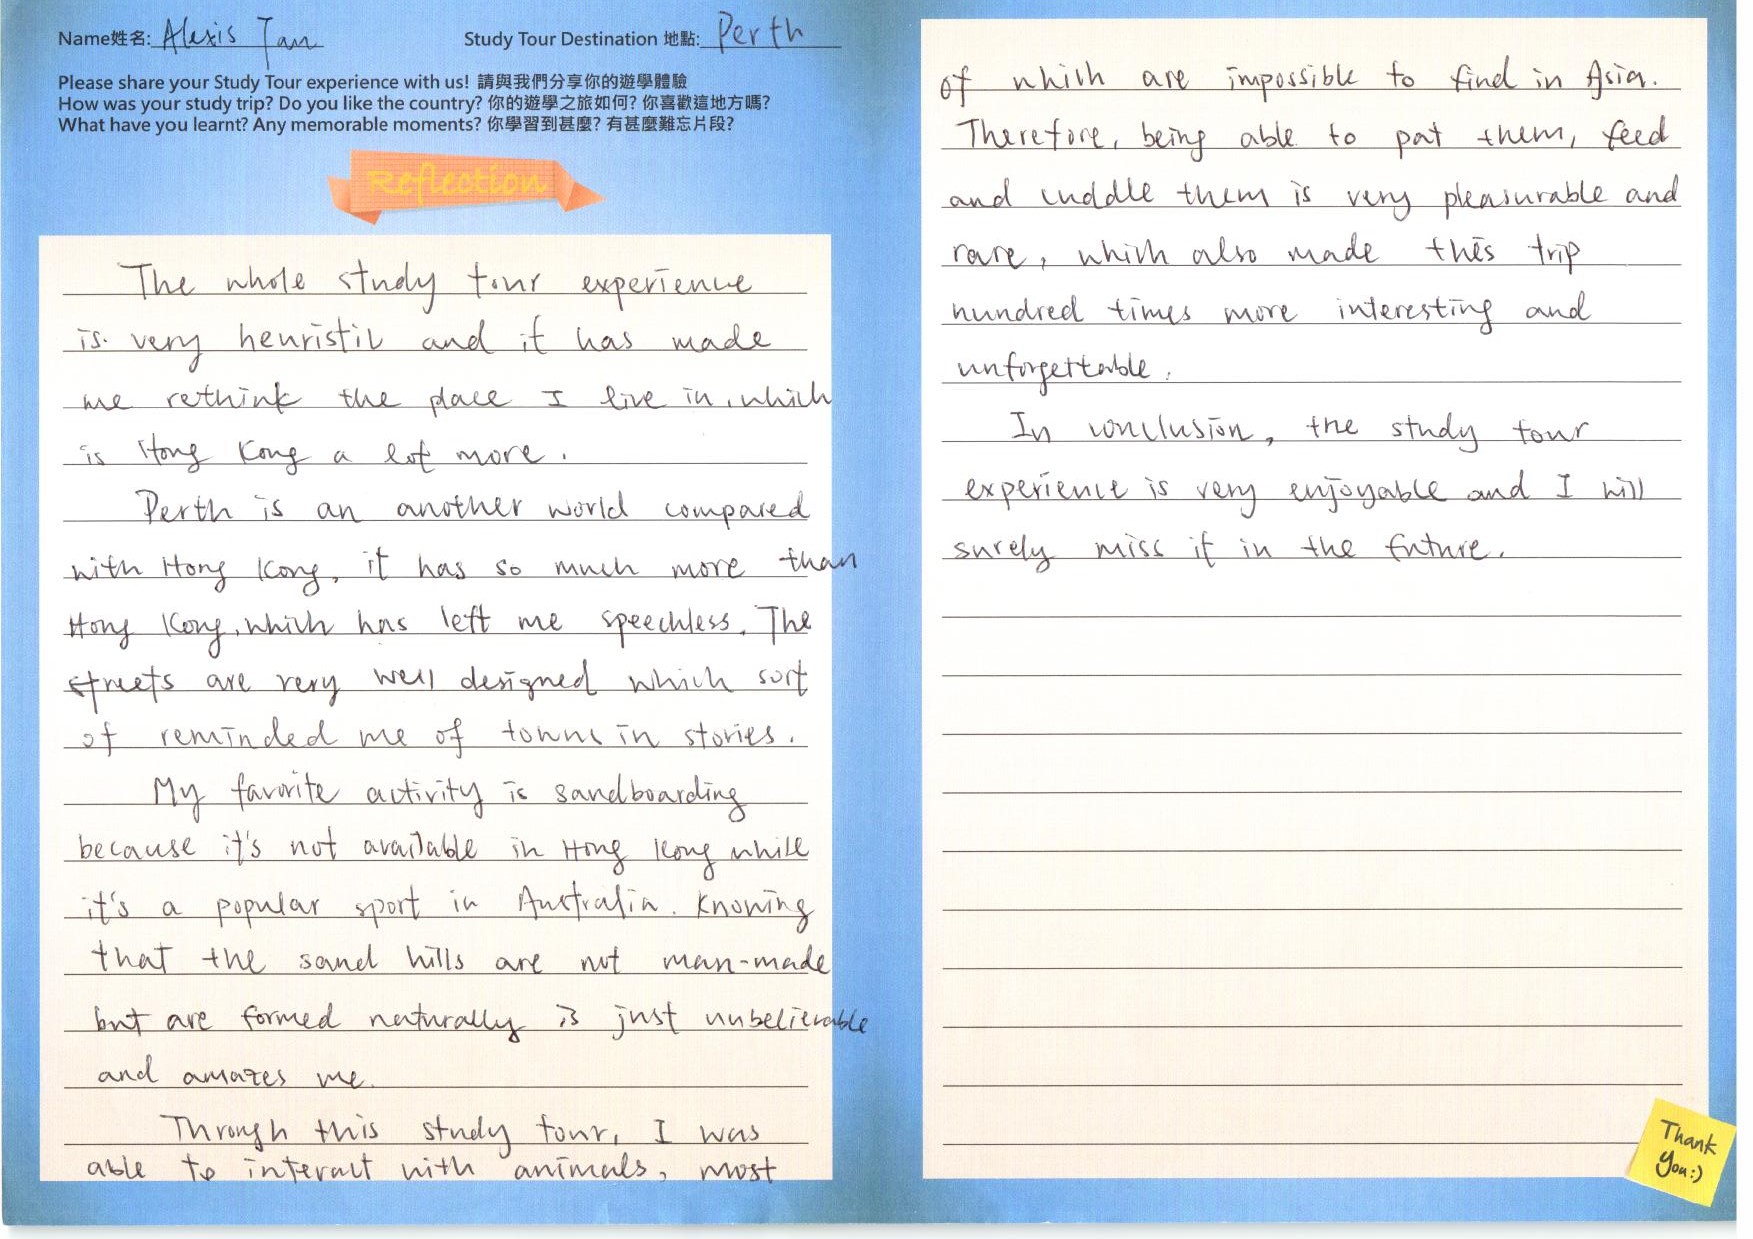 Name姓名: Alexis Tan
Study Tour Destination 地點: Perth
Please share your Study Tour experience with us! 請與我們分享你的遊學體驗
How was your study trip? Do you like the country? 你的遊學之旅如何? 你喜歡這地方嗎?
What have you learnt? Any memorable moments? 你學習到甚麼? 有甚麼難忘片段?
Reflection
The whole study tour experience
is very heuristic and it has made
me rethink the place I live in, which
is Hong Kong a lot more.
Perth is an another world compared
with Hong Kong, it has so much more than
Hong Kong, which has left me speechless. The
streets are very well designed which sort
of reminded me of towns in stories.
My favorite activity is sandboarding
because it's not available in Hong Kong while
it's a popular sport in Australia. Knowing
that the sand hills are not man-made
but are formed naturally is just unbelievable
and amazes me.
Through this study tour, I was
able to interact with animals, most
of which are impossible to find in Asia.
Therefore, being able to pat them, feed
and cuddle them is very pleasurable and
rare, which also made this trip
hundred times more interesting and
unforgettable.
In conclusion, the study tour
experience is very enjoyable and I will
surely miss it in the future.
Thank
You:)